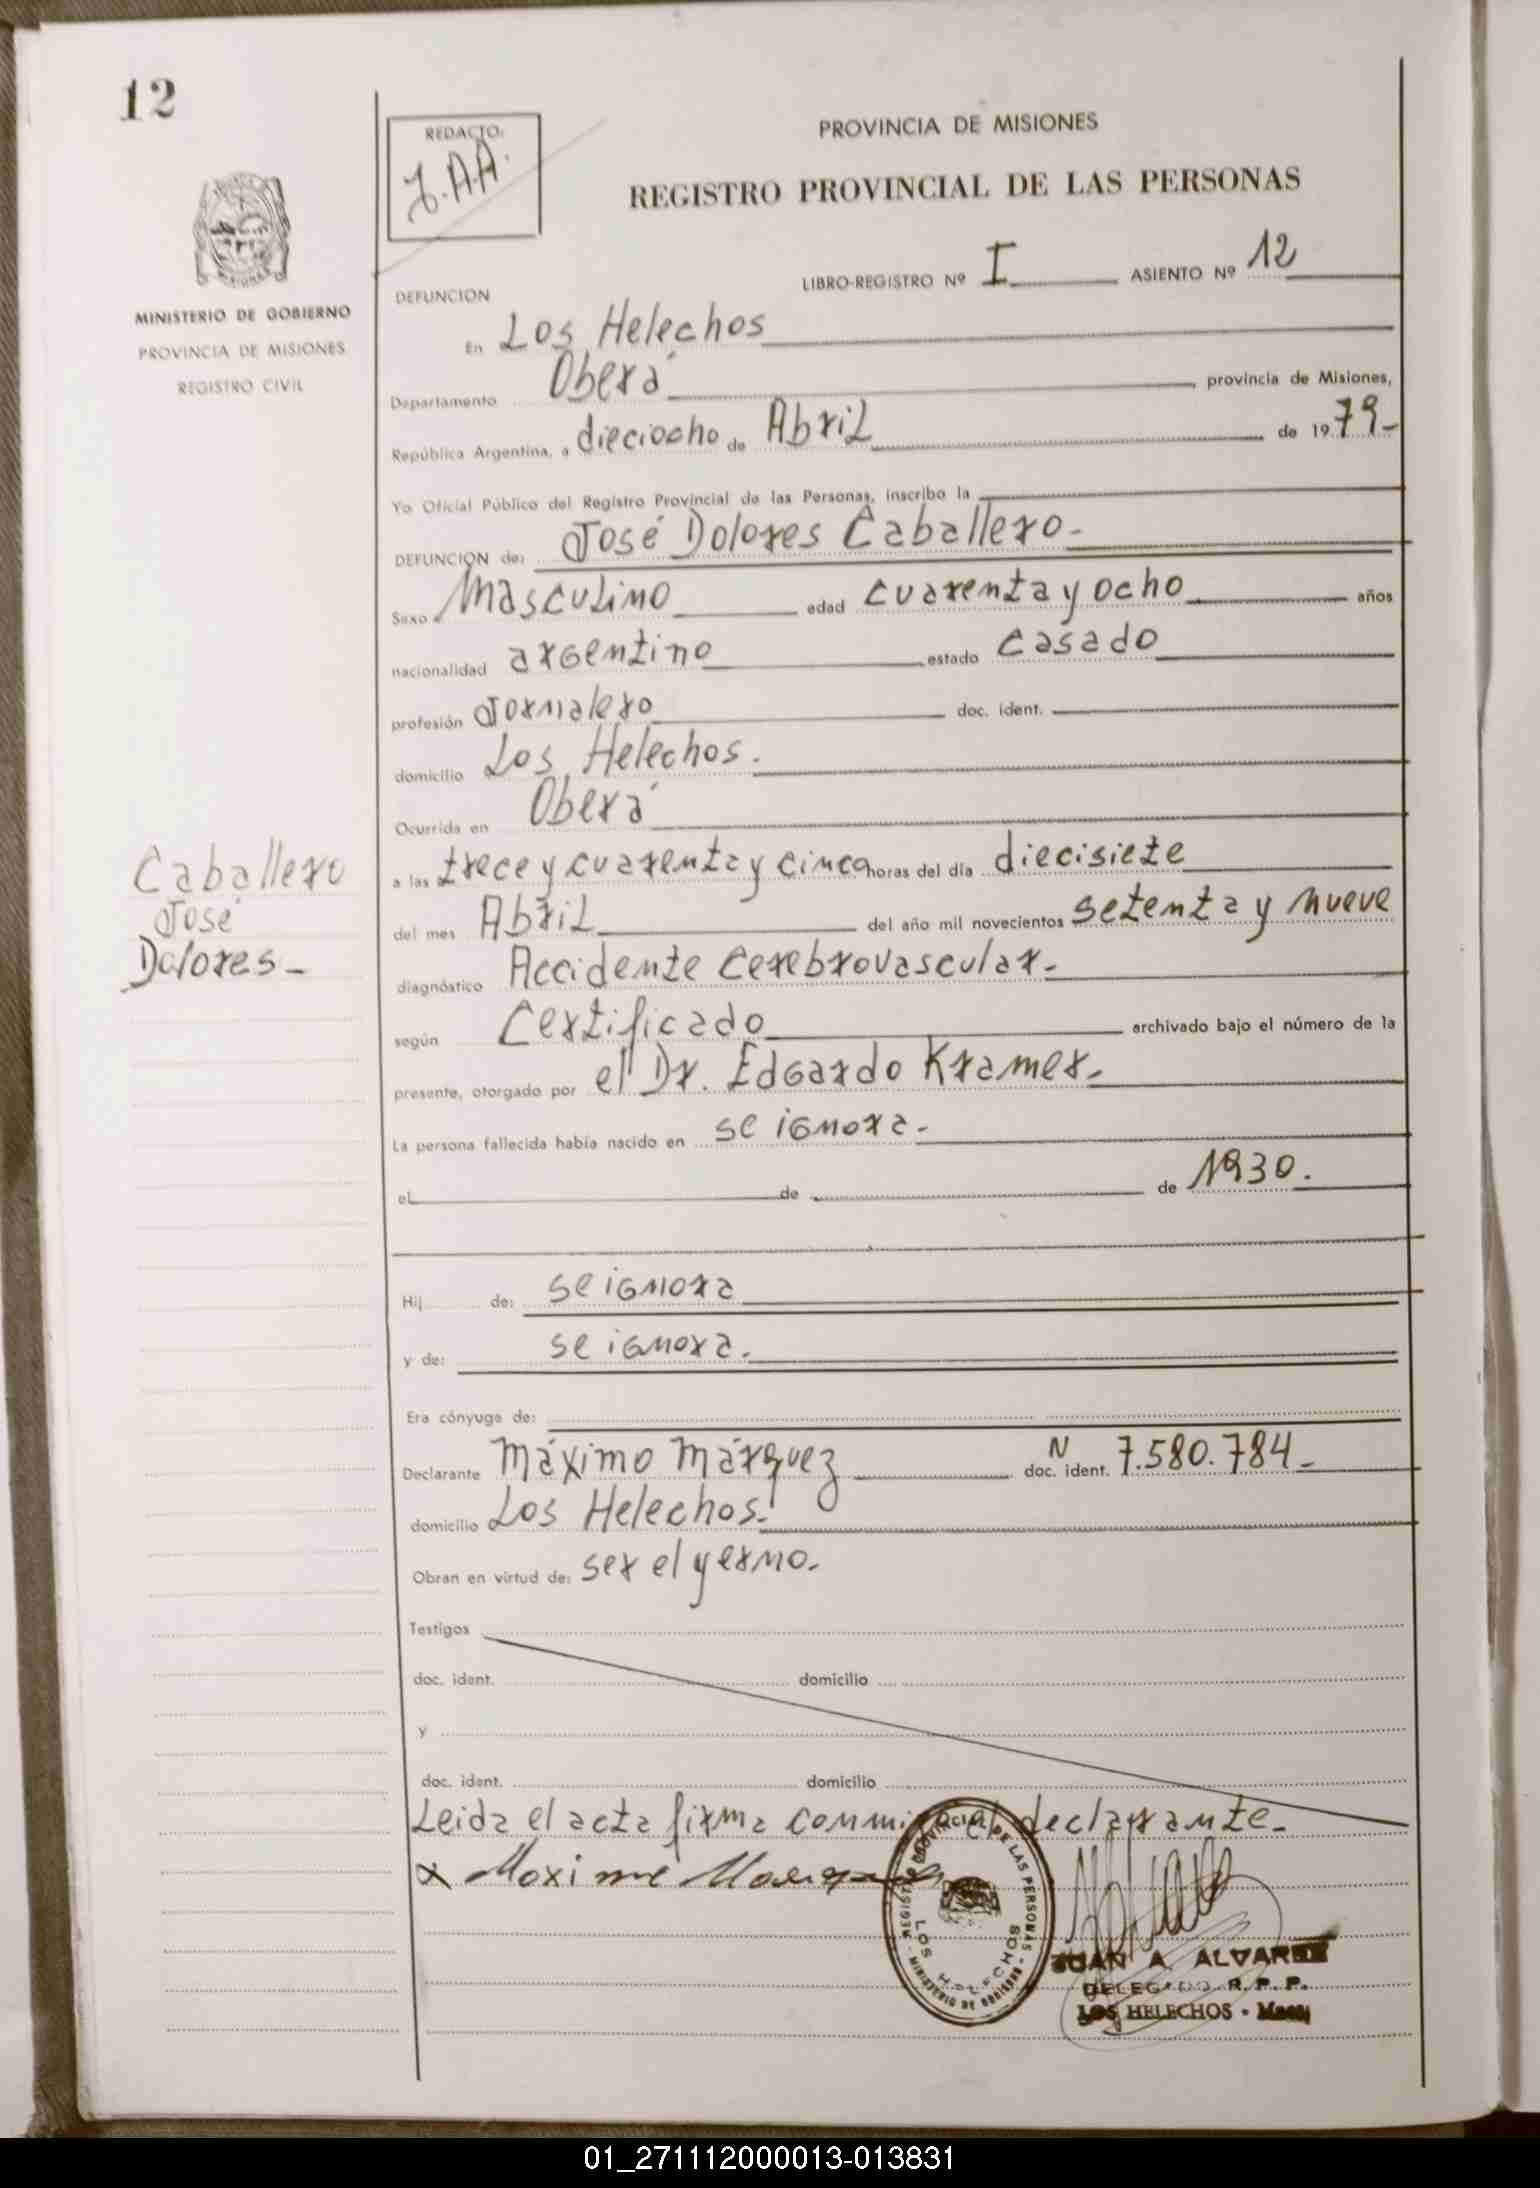 12
REDACTO:
J.A.A.
PROVINCIA DE MISIONES
REGISTRO PROVINCIAL DE LAS PERSONAS
LIBRO-REGISTRO Nº I ASIENTO Nº 12
MINISTERIO DE GOBIERNO
PROVINCIA DE MISIONES
REGISTRO CIVIL
DEFUNCION
En Los Helechos
Departamento Oberá provincia de Misiones,
República Argentina, a dieciocho de Abril de 1979-
Yo Oficial Público del Registro Provincial de las Personas, inscribo la
DEFUNCION de: José Dolores Caballero-
Sexo Masculino edad cuarenta y ocho años
nacionalidad argentino estado casado
profesión Jornalero doc. ident.
domicilio Los Helechos.
Ocurrida en Oberá
Caballero
José
Dolores-
a las trece y cuarenta y cinco horas del día diecisiete
del mes Abril del año mil novecientos setenta y nueve
diagnóstico Accidente cerebrovascular-
según Certificado archivado bajo el número de la
presente, otorgado por el Dr. Edgardo Kramer-
La persona fallecida había nacido en se ignora-
el de de 1930.
Hij de: se ignora
y de: se ignora.
Era cónyuge de:
Declarante Máximo Márquez N doc. ident. 7.580.784-
domicilio Los Helechos.
Obran en virtud de: ser el yerno.
Testigos
doc. ident. domicilio
y
doc. ident. domicilio
Leida el acta firma conmigo el declarante-
REGISTRO PROVINCIAL DE LAS PERSONAS
LOS HELECHOS
MINISTERIO DE GOBIERNO
JUAN A. ALVAREZ
DELEGADO R. P. P.
LOS HELECHOS -
01_271112000013-013831